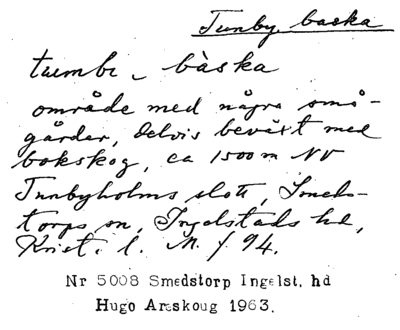 Tunby baska
tumbı ‿ bàska
område med några små-
gårdar, delvis beväxt med
bokskog, ca 1500 m NV
Tunbyholms slott, Smeds-
torps sn, Ingelstads hd,
Krist. l. M. / 94.
Nr 5008 Smedstorp Ingelst. hd
Hugo Areskoug 1963.